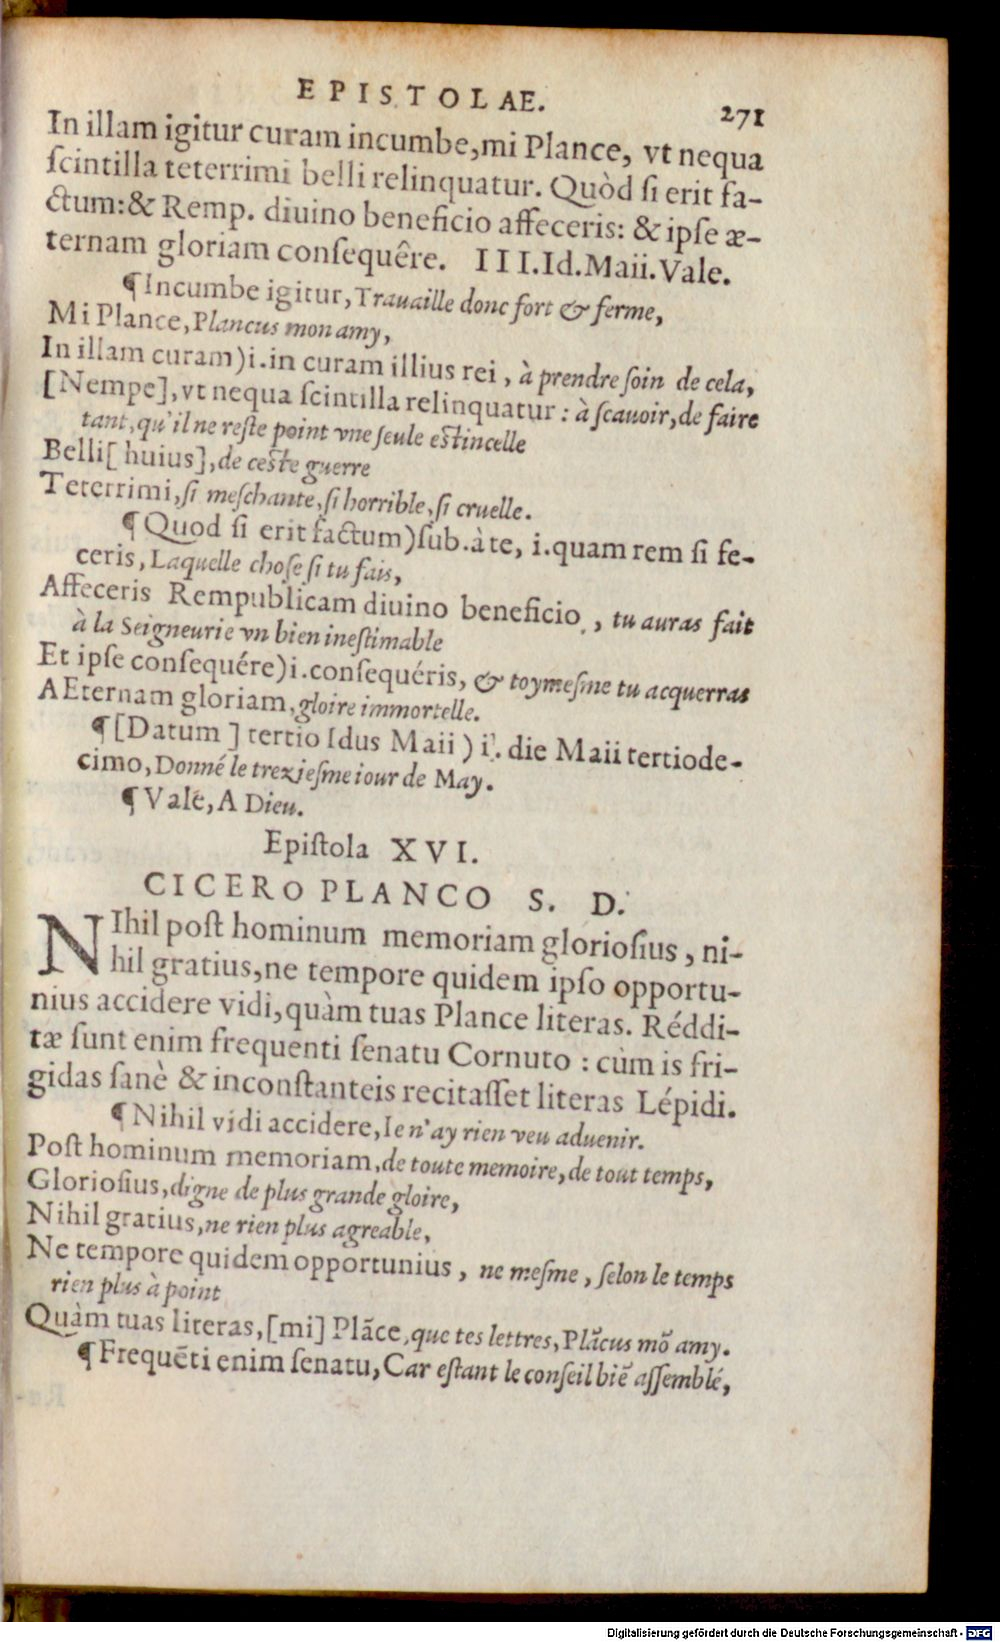 EPISTOLAE.
271
In illam igitur curam incumbe,mi Plance, vt nequa
ſcintilla teterrimi belli relinquatur. Quòd ſi erit fa-
ctum:& Remp. diuino beneficio affeceris: & ipſe æ-
ternam gloriam conſequêre. III.Id.Maii.Vale.
¶Incumbe igitur,Trauaille donc fort & ferme,
Mi Plance,Plancus mon amy,
In illam curam)i.in curam illius rei, à prendre ſoin de cela,
[Nempe],vt nequa ſcintilla relinquatur: à ſcauoir,de faire
tant,qu'il ne reſte point vne ſeule eſtincelle
Belli[huius],de ceſte guerre
Teterrimi,ſi meſchante,ſi horrible,ſi cruelle.
¶Quod ſi erit factum)ſub.à te, i.quam rem ſi fe-
ceris, Laquelle choſe ſi tu fais,
Affeceris Rempublicam diuino beneficio, tu auras fait
à la Seigneurie vn bien ineſtimable
Et ipſe conſequére)i.conſequéris, & toymeſme tu acquerras
AEternam gloriam,gloire immortelle.
¶[Datum] tertio Idus Maii) i. die Maii tertiode-
cimo, Donné le trezieſme iour de May.
¶Vale, A Dieu.
Epiſtola XVI.
CICERO PLANCO S. D.
NIhil poſt hominum memoriam glorioſius, ni-
hil gratius,ne tempore quidem ipſo opportu-
nius accidere vidi,quàm tuas Plance literas. Réddi-
tæ ſunt enim frequenti ſenatu Cornuto: cùm is fri-
gidas ſanè & inconſtanteis recitaſſet literas Lépidi.
¶Nihil vidi accidere,Ie n'ay rien veu aduenir.
Poſt hominum memoriam,de toute memoire,de tout temps,
Glorioſius,digne de plus grande gloire,
Nihil gratius,ne rien plus agreable,
Ne tempore quidem opportunius, ne meſme, ſelon le temps
rien plus à point
Quàm tuas literas,[mi] Plãce,que tes lettres,Plãcus mõ amy.
¶Frequẽti enim ſenatu, Car eſtant le conſeil biẽ aſſemblé,
Digitalisierung gefördert durch die Deutsche Forschungsgemeinschaft - DFG